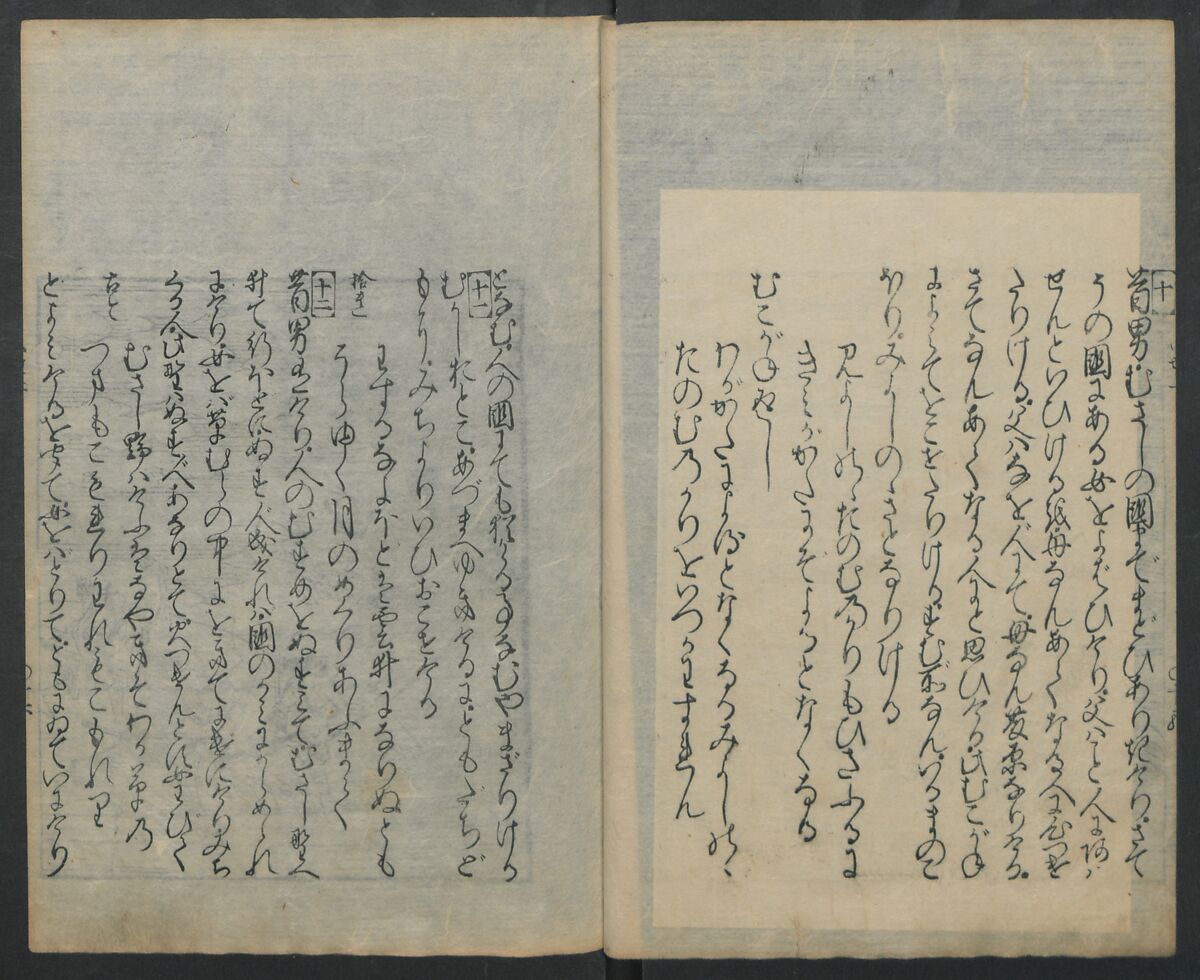 十
昔男、むさしの國までまどひありきけり。さて
その國にある女をよばひけり。父はこと人にあは
せんといひけるを、母なんあてなる人に心つけ
たりける。父はなを人にて、母なん藤原なりける。
さてなんあてなる人にと思ひける。此むこがね
によみてをこせたりける。すむ所なん、いるまのこ
ほり、みよしのゝさとなりける
みよしのゝたのむのかりもひたふるに
きみがかたにぞよるとなくなる
むこがね返し
わがかたによるとなくなるみよしのゝ
たのむのかりをいつかわすれん
となむ。人の國にても猶かゝる事なむやまざりける
十一
むかしおとこ、あづまへゆきけるに、ともだちど
もに、みちよりいひおこせける
拾遺
わするなよほどは雲井になりぬとも
そらゆく月のめぐりあふまで
十二
昔男有けり。人のむすめをぬすみて、むさし野へ
井て行ほどに、ぬす人成ければ、國のかみにからめられ
にけり。女をば草むらの中にをきてにげにけり。みち
くる人、此野はぬす人あなりとて、火つけんとす。女わびて
むさし野はけふはなやきそわか草の
古今
つまもこもれりわれもこもれり
とよみけるをきゝて、女をばとりて、ともにゐていにけり